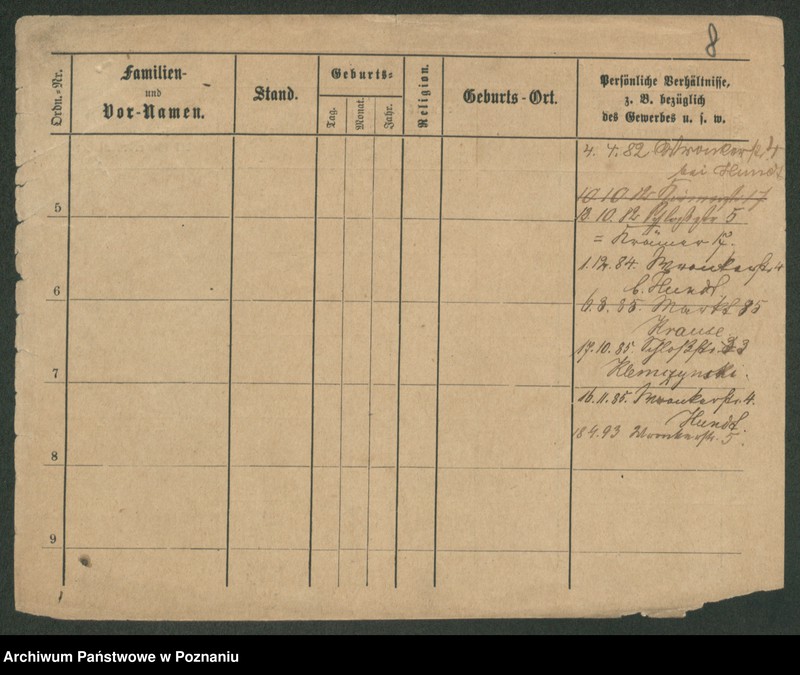 8
Ordn.-Nr.
Familien-
und
Vor-Namen.
Stand.
Geburts-
Tag.
Monat.
Jahr.
Religion.
Geburts-Ort.
Persönliche Verhältnisse,
z. B. bezüglich
des Gewerbes u. s. w.
4. 4. 82 Wronkerstr. 4
bei Hundt
10 10 82 17
5
13. 10. 82 Schloßstr 5
= Krämer 17.
1. 12. 84. Wronkerstr. 4
6
b. Hundt
6. 3. 85. Markt 85
Krause
17. 10. 85. Schloßstr. 3
7
Klemczynski.
16. 11. 85. Wronkerstr. 4.
Hundt
18 4. 93 Wronkerstr. 5.
8
9
Archiwum Państwowe w Poznaniu